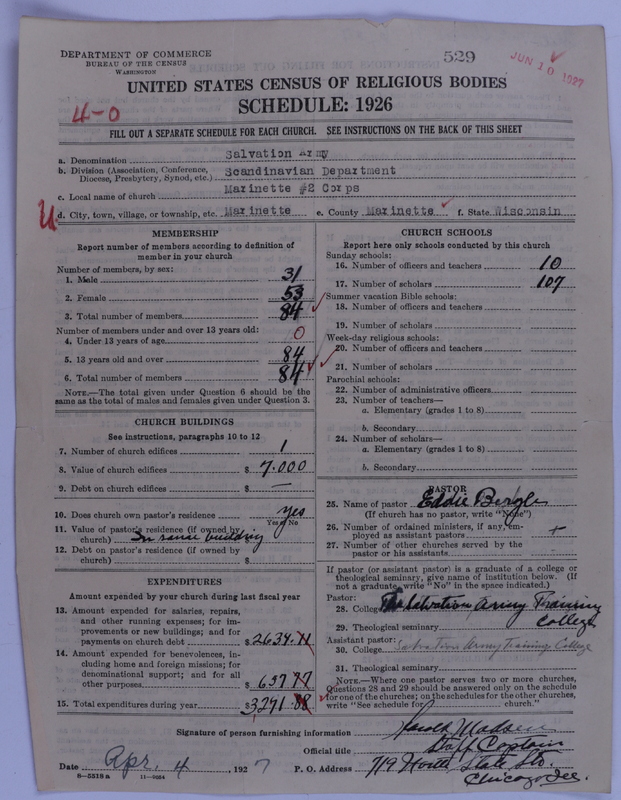 DEPARTMENT OF COMMERCE
BUREAU OF THE CENSUS
WASHINGTON
529
JUN 10 1927
UNITED STATES CENSUS OF RELIGIOUS BODIES
SCHEDULE: 1926
4-0
FILL OUT A SEPARATE SCHEDULE FOR EACH CHURCH. SEE INSTRUCTIONS ON THE BACK OF THIS SHEET
a. Denomination Salvation Army
b. Division (Association, Conference, Diocese, Presbytery, Synod, etc.) Scandinavian Department
c. Local name of church Marinette #2 Corps
d. City, town, village, or township, etc. Marinette e. County Marinette f. State Wisconsin
MEMBERSHIP
Report number of members according to definition of
member in your church
Number of members, by sex:
1. Male 31
2. Female 53
3. Total number of members 84
Number of members under and over 13 years old:
4. Under 13 years of age 0
5. 13 years old and over 84
6. Total number of members 84
NOTE.—The total given under Question 6 should be
same as the total of males and females given under Question 3.
CHURCH BUILDINGS
See instructions, paragraphs 10 to 12
7. Number of church edifices 1
8. Value of church edifices $ 7.000
9. Debt on church edifices $ —
10. Does church own pastor's residence yes
Yes or No
11. Value of pastor's residence (if owned by
church) In same building
12. Debt on pastor's residence (if owned by
church) $
EXPENDITURES
Amount expended by your church during last fiscal year
13. Amount expended for salaries, repairs,
and other running expenses; for im-
provements or new buildings; and for
payments on church debt $ 2634.11
14. Amount expended for benevolences, in-
cluding home and foreign missions; for
denominational support; and for all
other purposes $ 657 77
15. Total expenditures during year $ 3,291.88
CHURCH SCHOOLS
Report here only schools conducted by this church
Sunday schools:
16. Number of officers and teachers 10
17. Number of scholars 107
Summer vacation Bible schools:
18. Number of officers and teachers
19. Number of scholars
Week-day religious schools:
20. Number of officers and teachers
21. Number of scholars
Parochial schools:
22. Number of administrative officers
23. Number of teachers—
a. Elementary (grades 1 to 8)
b. Secondary
24. Number of scholars—
a. Elementary (grades 1 to 8)
b. Secondary
PASTOR
25. Name of pastor Eddie
(If church has no pastor, write "None")
26. Number of ordained ministers, if any, em-
ployed as assistant pastors
27. Number of other churches served by the
pastor or his assistants
If pastor (or assistant pastor) is a graduate of a college or
theological seminary, give name of institution below. (If
not a graduate, write "No" in the space indicated.)
Pastor:
28. College The Salvation Army Training
College
29. Theological seminary
Assistant pastor:
30. College Salvation Army Training College
31. Theological seminary
NOTE.—Where one pastor serves two or more churches,
Questions 28 and 29 should be answered only on the schedule
for one of the churches; on the schedules for the other churches,
write "See schedule for church."
Signature of person furnishing information Madsen
Official title Staff Captain
Date Apr. 4 1927 P. O. Address 719 North State Str.
Chicago Ill.
8—5518a 11—9654